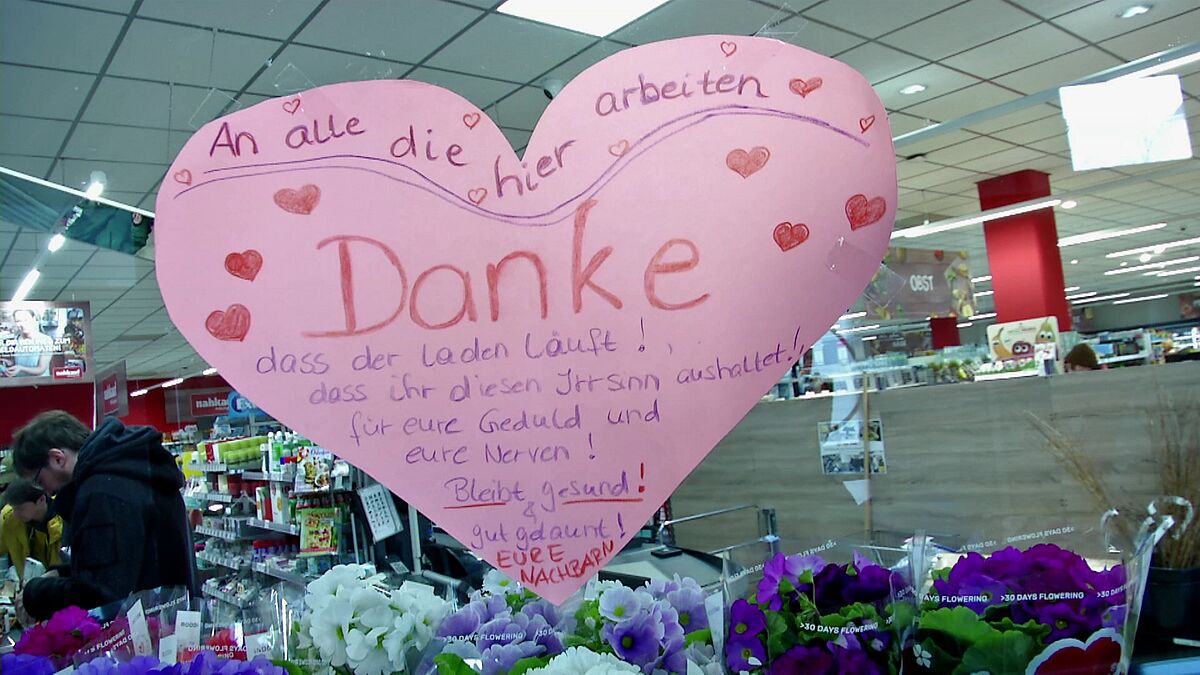 An alle die hier arbeiten
Danke
dass der Laden läuft!,
dass ihr diesen Irrsinn aushaltet!,
für eure Geduld und
eure Nerven!
Bleibt gesund!
&
gut gelaunt!
EURE
NACHBARN
OBST
nahkauf
nahkauf
>30 DAYS FLOWERING
>30 DAYS FLOWERING
>30 DAYS FLOWERING